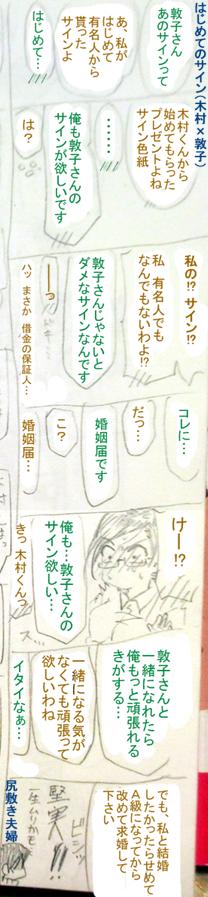 はじめてのサイン(木村×敦子)
敦子さん
あのサインって
あ、私が
はじめて
有名人から
貰った
サインよ
はじめて…
木村くんから
始めてもらった
プレゼントよね
サイン色紙
……
俺も敦子さんの
サインが欲しいです
は?
私の!? サイン!?
私 有名人でも
なんでもないわよ!?
敦子さんじゃないと
ダメなサインなんです
ーーっ
ハッ まさか 借金の保証人…
コレに…
だっ…
婚姻届です
こ?
婚姻届…
けー!?
俺も…敦子さんの
サイン欲しい…
きっ 木村くんっ
敦子さんと
一緒になれたら
俺もっと頑張れる
きがする…
一緒になる気が
なくても頑張って
欲しいわね
イタイなぁ…
でも、私と結婚
したかったらせめて
A級になってから
改めて求婚して
下さい
堅実!!
尻敷き夫婦